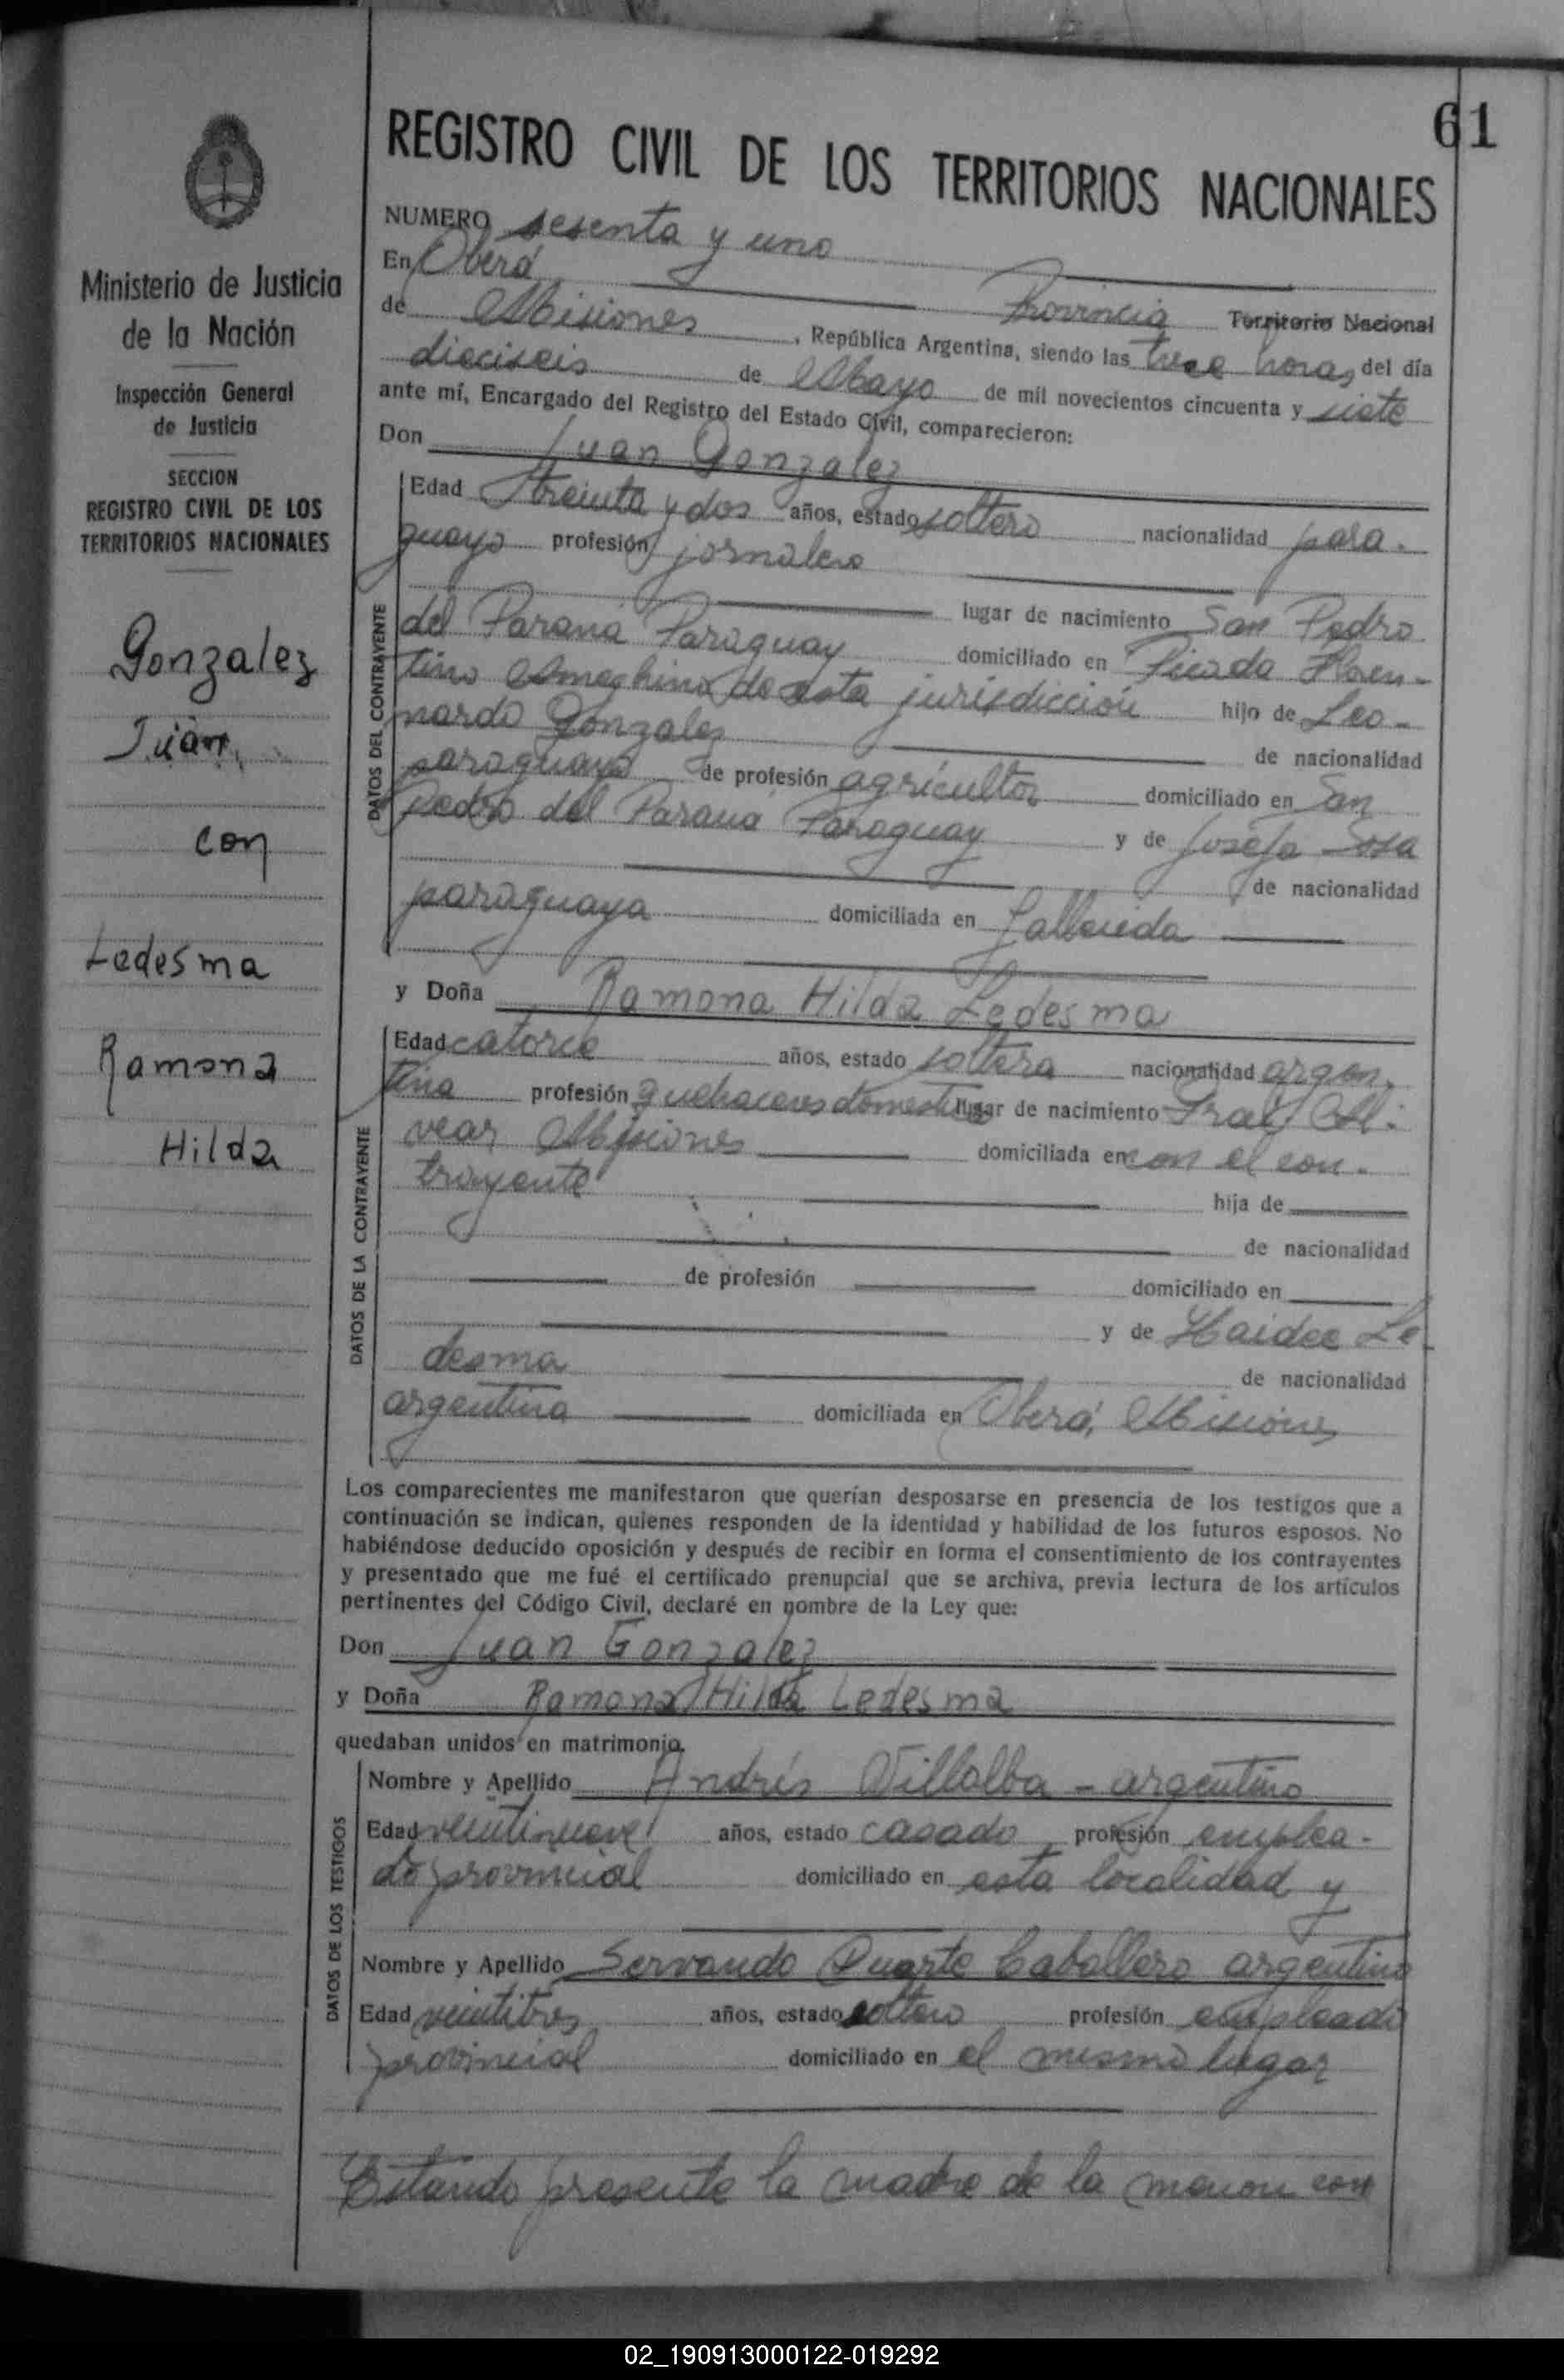 61
REGISTRO CIVIL DE LOS TERRITORIOS NACIONALES
Ministerio de Justicia
de la Nación
Inspección General
de Justicia
SECCION
REGISTRO CIVIL DE LOS
TERRITORIOS NACIONALES
Gonzalez
Juan
con
Ledesma
Ramona
Hilda
NUMERO sesenta y uno
En Oberá
Provincia Territorio Nacional
de Misiones, República Argentina, siendo las trece horas del día
dieciseis de Mayo de mil novecientos cincuenta y siete
ante mí, Encargado del Registro del Estado Civil, comparecieron:
Don Juan Gonzalez
DATOS DEL CONTRAYENTE
Edad treinta y dos años, estado soltero nacionalidad para-
guayo profesión jornalero
lugar de nacimiento San Pedro
del Paraná Paraguay domiciliado en Picada Floren-
tino Ameghino de esta jurisdicción hijo de Leo-
nardo Gonzalez
de nacionalidad
paraguayo de profesión agricultor domiciliado en San
Pedro del Paraná Paraguay y de Josefa Sosa
de nacionalidad
paraguaya domiciliada en fallecida
y Doña Ramona Hilda Ledesma
DATOS DE LA CONTRAYENTE
Edad catorce años, estado soltera nacionalidad argen-
tina profesión quehaceres domesticos lugar de nacimiento Gral. Al-
vear Misiones domiciliada en con el con-
trayente
hija de
de nacionalidad
de profesión domiciliado en
y de Haidee Le-
desma
de nacionalidad
argentina domiciliada en Oberá, Misiones
Los comparecientes me manifestaron que querían desposarse en presencia de los testigos que a
continuación se indican, quienes responden de la identidad y habilidad de los futuros esposos. No
habiéndose deducido oposición y después de recibir en forma el consentimiento de los contrayentes
y presentado que me fué el certificado prenupcial que se archiva, previa lectura de los artículos
pertinentes del Código Civil, declaré en nombre de la Ley que:
Don Juan Gonzalez
y Doña Ramona Hilda Ledesma
quedaban unidos en matrimonio.
DATOS DE LOS TESTIGOS
Nombre y Apellido Andrés Villalba - argentino
Edad veintinueve años, estado casado profesión emplea-
do provincial domiciliado en esta localidad y
Nombre y Apellido Servando Duarte Caballero argentino
Edad veintitres años, estado soltero profesión empleado
provincial domiciliado en el mismo lugar
Estando presente la madre de la menor con
02_190913000122-019292